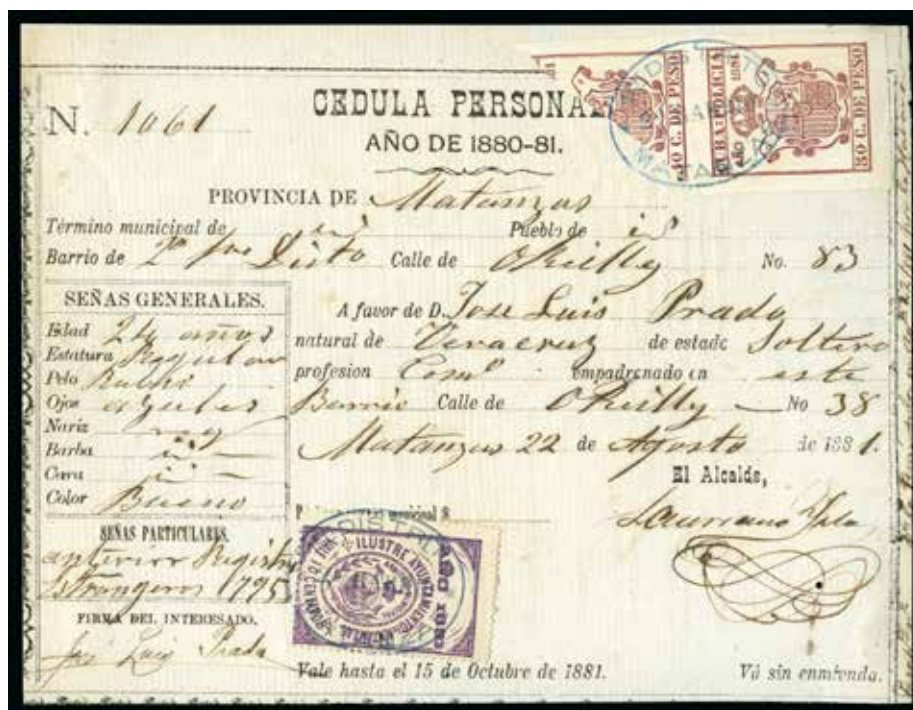 N. 1061
CEDULA PERSONAL
AÑO DE 1880-81.
40 C. DE PESO
CUBA-POLICIA
AÑO 1881
80 C. DE PESO
DISTRITO
MATANZAS
PROVINCIA DE Matanzas
Término municipal de id Pueblo de id
Barrio de 2º Disto Calle de OReilly No. 83
SEÑAS GENERALES.
Edad 24 años
Estatura Regular
Pelo Rubio
Ojos azules
Nariz reg
Barba id
Cara id
Color Bueno
SEÑAS PARTICULARES.
anterior Registro
strangeros 1795
FIRMA DEL INTERESADO.
José Luis Prado
A favor de D. Jose Luis Prado
natural de Veracruz de estado Soltero
profesion Comº empadronado en este
Barrio Calle de OReilly No 38
Matanzas 22 de Agosto de 1881.
El Alcalde,
Laureano
municipal $
DISTRITO
ILUSTRE AYUNTAMIENTO
AÑO 1881
Vale hasta el 15 de Octubre de 1881.
Vá sin enmienda.